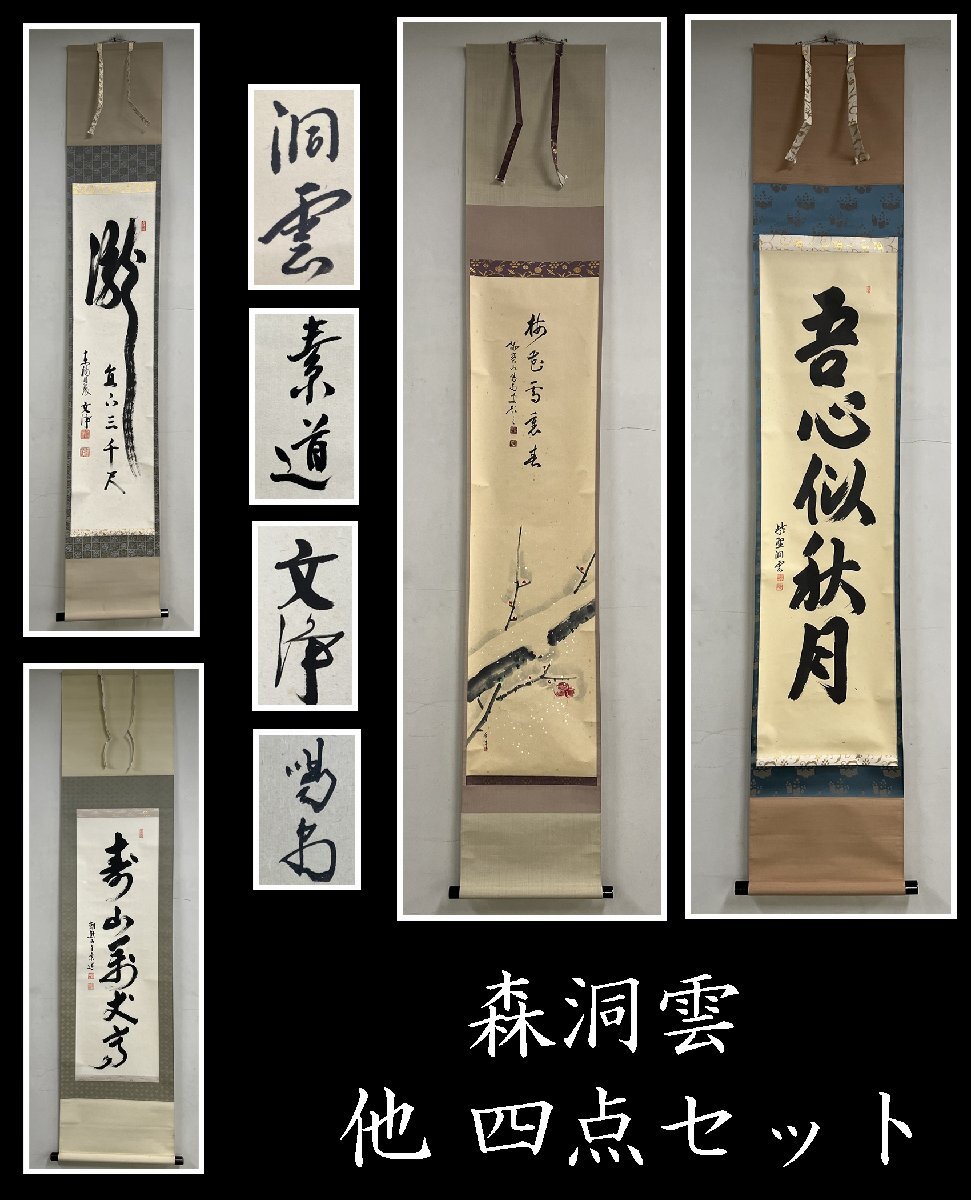 瀧
直下三千尺
文浄
洞雲
素道
文浄
梅花雪裏春
吾心似秋月
紫野洞雲
寿山萬丈高
森洞雲
他 四点セット